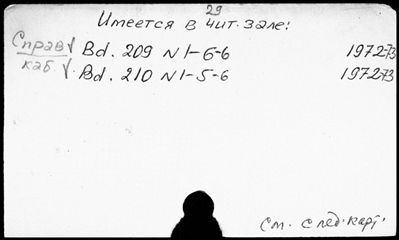 29
Имеется в чит. зале:
Справ √ Bd. 209 N 1-6-6 1972-73
каб. √. Bd. 210 N 1-5-6 1972-73
См. след. карт.